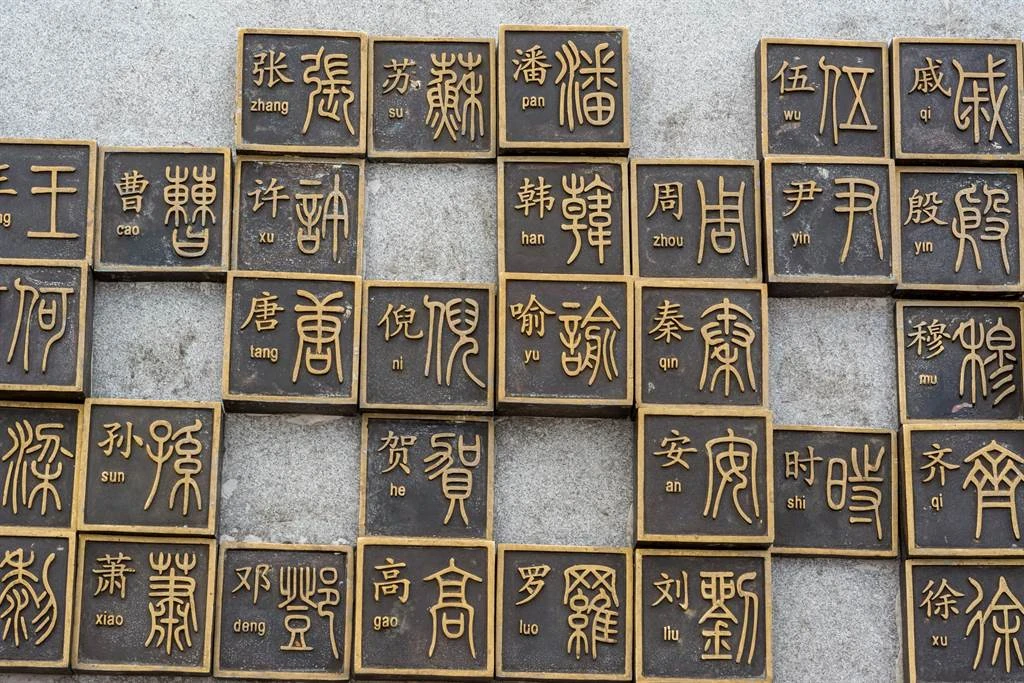 张 張
zhang
苏 蘇
su
潘 潘
pan
伍 伍
wu
戚 戚
qi
王
ng
曹 曹
cao
许 許
xu
韩 韓
han
周 周
zhou
尹 尹
yin
殷 殷
yin
何
唐 唐
tang
倪 倪
ni
喻 諭
yu
秦 秦
qin
穆 穆
mu
梁
孙 孫
sun
贺 賀
he
安 安
an
时 時
shi
齐 齊
qi
黎
萧 蕭
xiao
邓 鄧
deng
高 高
gao
罗 羅
luo
刘 劉
liu
徐 徐
xu